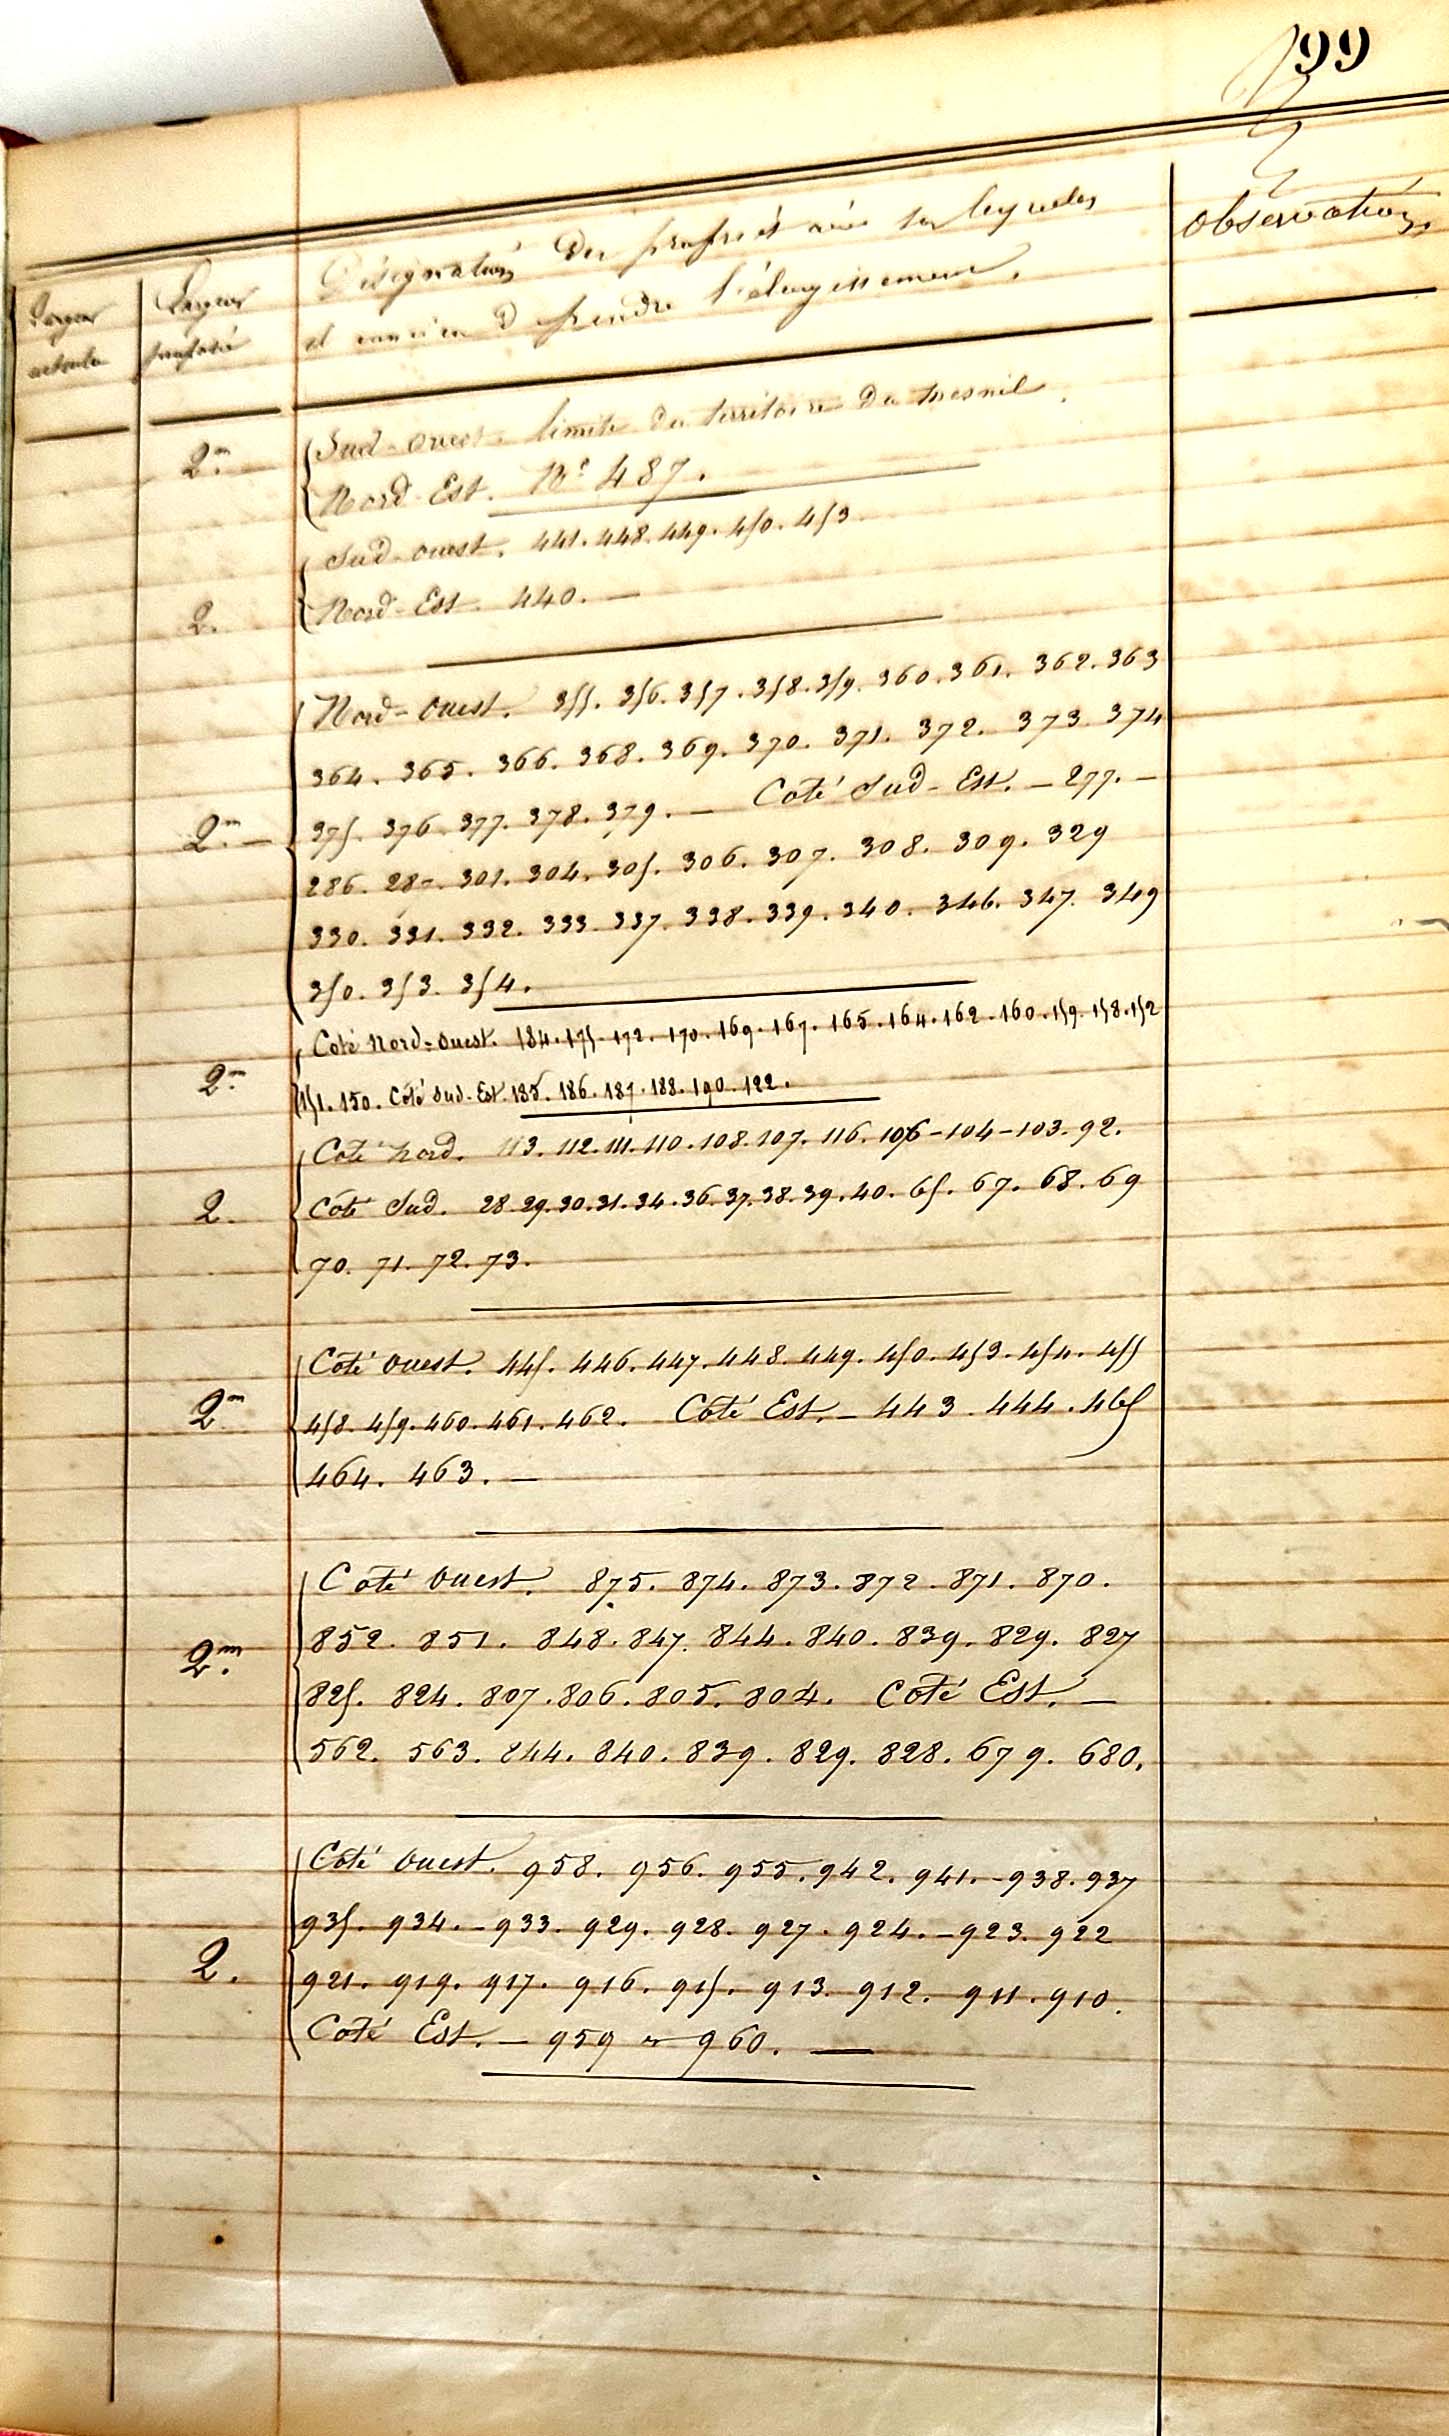 99
Largeur actuelle
Largeur proposée
Désignation des propriétés sur lesquelles
et prendre l'élargissement.
observations
2m
Sud-ouest. limite du territoire du mesnil.
Nord-Est. No 487.
2.
Sud-ouest. 441. 448. 449. 450. 453
Nord-Est. 440. —
Nord-ouest. 355. 356. 357. 358. 359. 360. 361. 362. 363
364. 365. 366. 368. 369. 370. 371. 372. 373. 374
2m —
375. 376. 377. 378. 379. — Coté Sud-Est. — 277. —
286. 301. 304. 305. 306. 307. 308. 309. 329
330. 331. 332. 333. 337. 338. 339. 340. 346. 347. 349
350. 353. 354.
Coté Nord-ouest. 184. 175. 172. 170. 169. 167. 165. 164. 162. 160. 159. 158. 152
2m
151. 150. Coté Sud-Est. 185. 186. 187. 188. 190. 122.
Coté nord. 113. 112. 111. 110. 108. 107. 116. 106 — 104 — 103. 92.
2.
Coté Sud. 28. 29. 30. 31. 34. 36. 37. 38. 39. 40. 65. 67. 68. 69
70. 71. 72. 73.
Coté ouest. 445. 446. 447. 448. 449. 450. 453. 454. 455
2m
458. 459. 460. 461. 462. Coté Est. — 443. 444. 465
464. 463. —
Coté ouest. 875. 874. 873. 872. 871. 870.
2m
852. 851. 848. 847. 844. 840. 839. 829. 827
825. 824. 807. 806. 805. 804. Coté Est. —
562. 563. 844. 840. 839. 829. 828. 679. 680.
Coté ouest. 958. 956. 955. 942. 941. - 938. 937
935. 934. - 933. 929. 928. 927. 924. - 923. 922
2.
921. 919. 917. 916. 915. 913. 912. 911. 910.
Coté Est. — 959 et 960. —